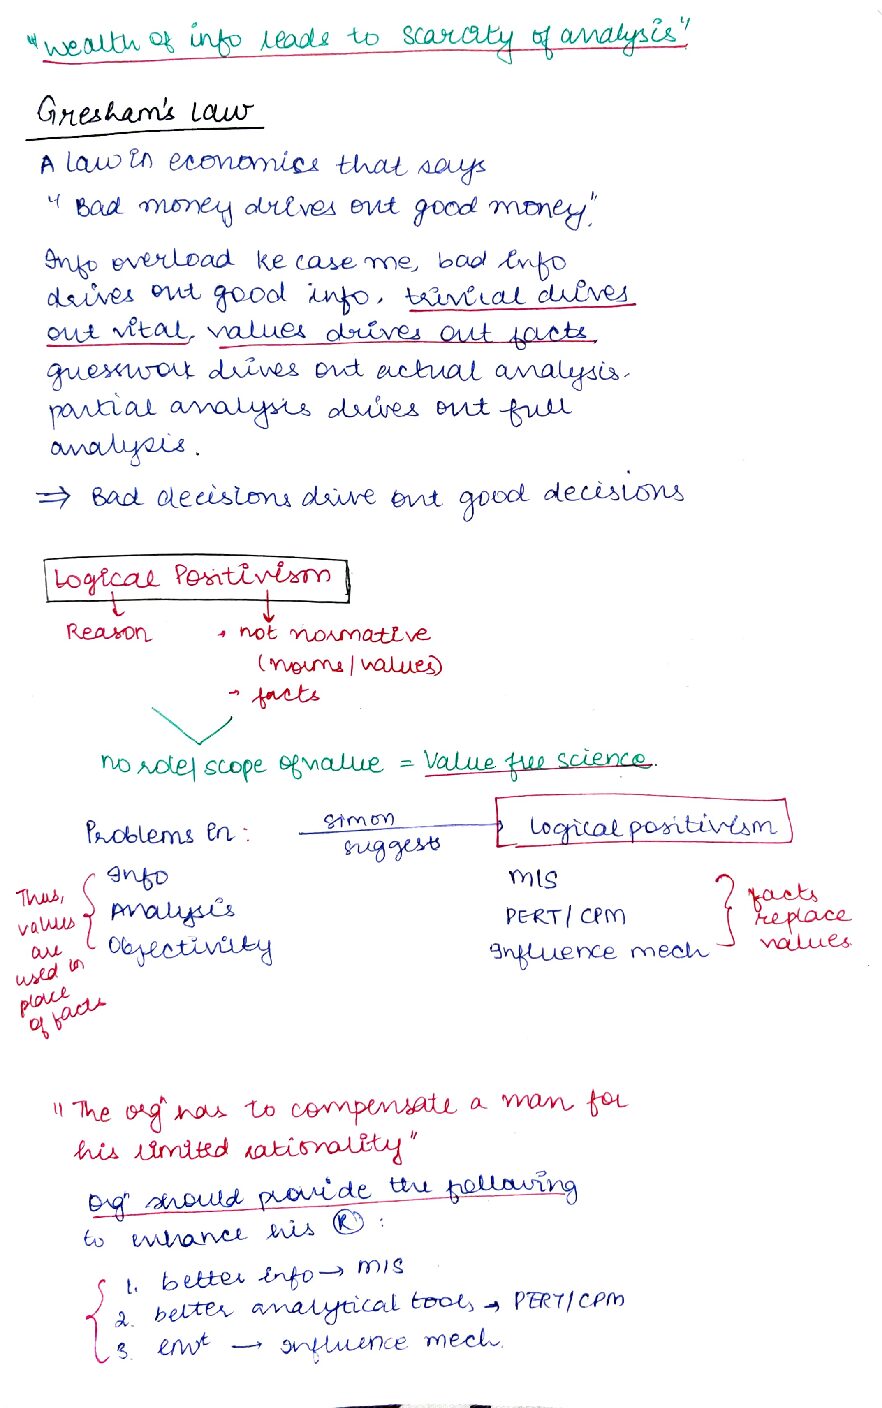 "wealth of info leads to scarcity of analysis"
Gresham's Law
A law in economics that says
"Bad money drives out good money".
Info overload ke case me, bad info
drives out good info. trivial drives
out vital, values drives out facts
guesswork drives out actual analysis.
partial analysis drives out full
analysis.
⇒ Bad decisions drive out good decisions
Logical Positivism
Reason
• not normative
(norms/values)
→ facts
no role/scope of value = Value free science.
Problems in:
simon
suggests
Logical positivism
Info
Analysis
Objectivity
Thus,
values
are
used in
place
of facts
MIS
PERT/CPM
Influence mech
facts
replace
values.
"The orgn has to compensate a man for
his limited rationality"
orgn should provide the following
to enhance his (R):
1. better info → MIS
2. better analytical tools → PERT/CPM
3. envt → Influence mech.